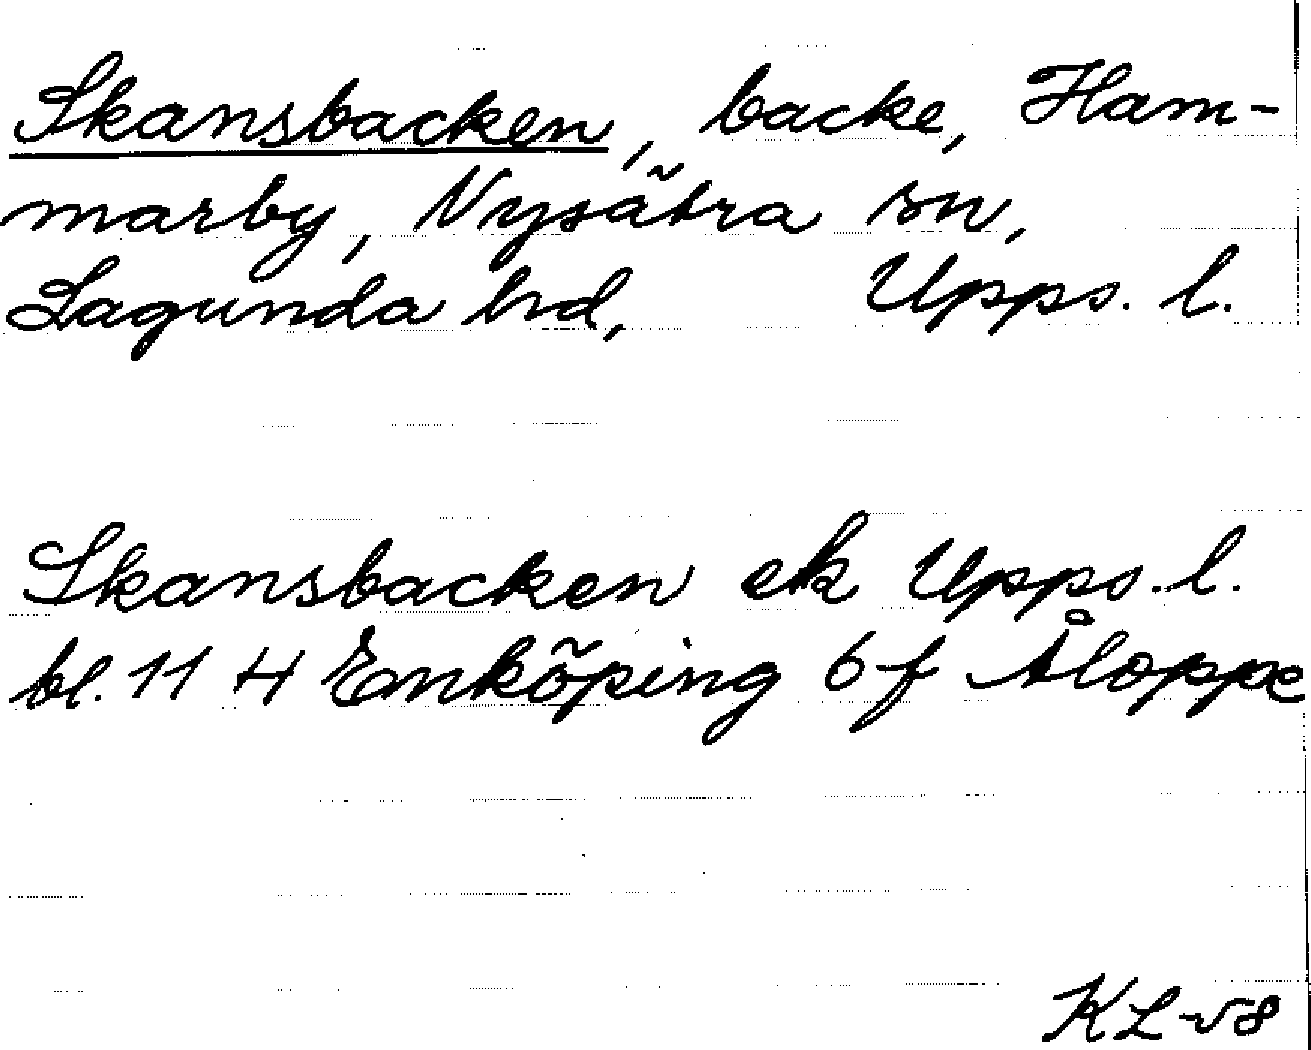 Skansbacken, backe, Ham-
marby, Nysätra sn,
Lagunda hd, Upps. l.
Skansbacken ek Upps. l.
bl. 11 H Enköping 6f Åloppe
KL-58